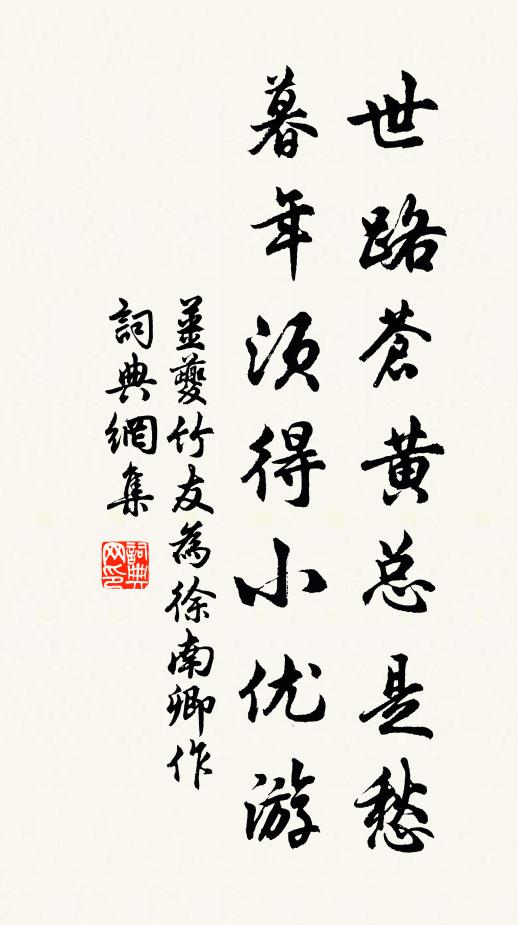 世路蒼黄总是愁
暮年须得小优游
姜夔竹友為徐南卿作
詞典網集
詞典网印